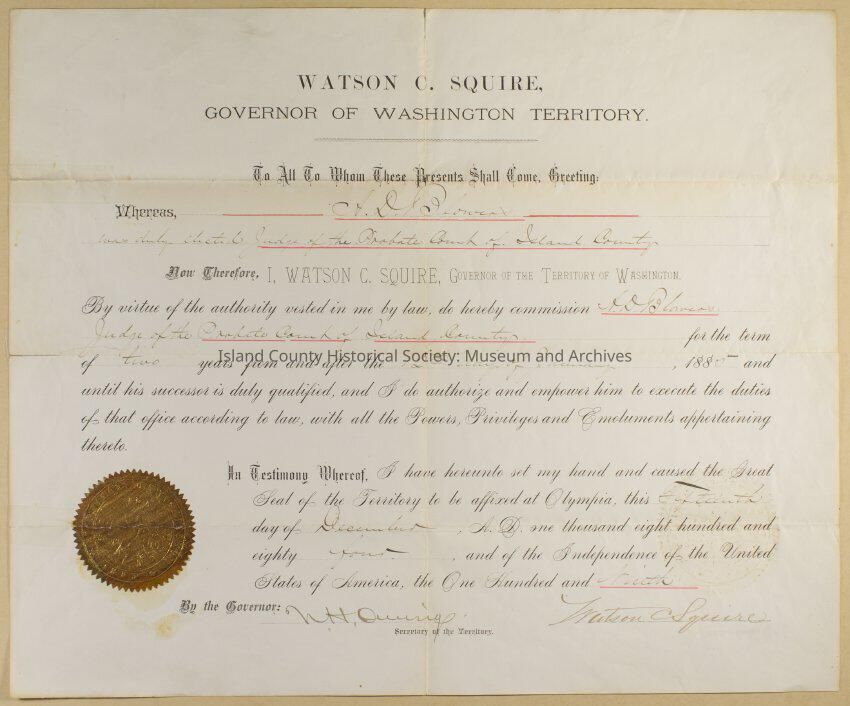 WATSON C. SQUIRE,
GOVERNOR OF WASHINGTON TERRITORY.
To All To Whom These Presents Shall Come, Greeting:
Whereas, A. D. Blowers
was duly elected Judge of the Probate Court of Island County
Now Therefore, I, WATSON C. SQUIRE, GOVERNOR OF THE TERRITORY OF WASHINGTON,
By virtue of the authority vested in me by law, do hereby commission A D Blowers
Judge of the Probate Court of Island County, for the term
of two years from and after the , 1885 and
Island County Historical Society: Museum and Archives
until his successor is duly qualified, and I do authorize and empower him to execute the duties
of that office according to law, with all the Powers, Privileges and Emoluments appertaining
thereto.
In Testimony Whereof, I have hereunto set my hand and caused the Great
Seal of the Territory to be affixed at Olympia, this Fifteenth
day of December , A. D. one thousand eight hundred and
eighty four , and of the Independence of the United
States of America, the One Hundred and Ninth
By the Governor: N. H. Owings Watson C Squire
Secretary of the Territory.